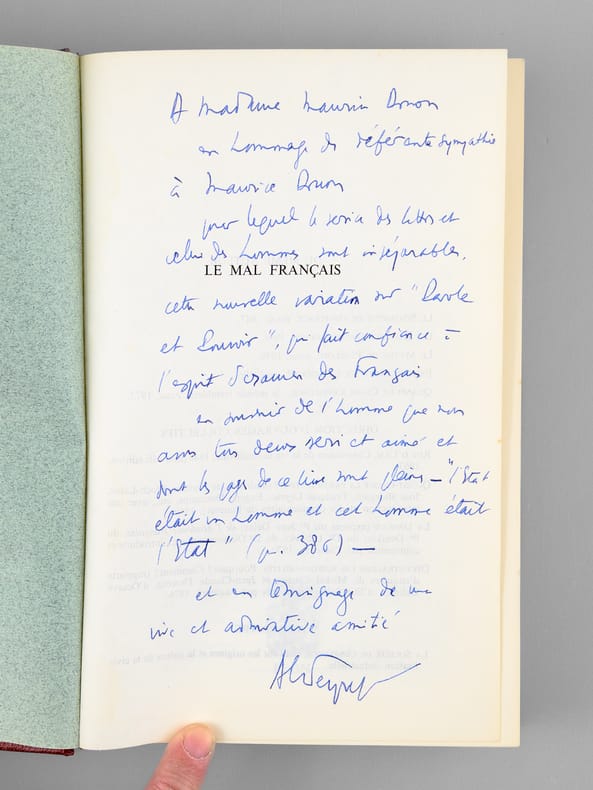 A Madame Maurice Druon
en hommage de déférente sympathie
à Maurice Druon
pour lequel le service des lettres et
celui des hommes sont inséparables,
LE MAL FRANÇAIS
cette nouvelle variation sur "Parole
et Pouvoir", qui fait confiance à
l'esprit d'examen des Français
en souvenir de l'homme que nous
avons tous deux servi et aimé et
dont les pages de ce livre sont pleines — "l'Etat
était un homme et cet homme était
l'Etat" (p. 386) —
et en témoignage de ma
vive et admirative amitié